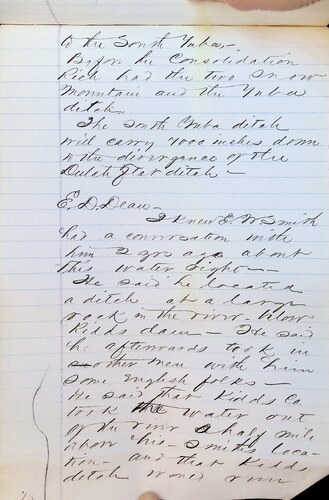 to the South Yuba.
Before the Consolidation
Rich had the two Snow
Mountain and the Yuba
ditch.
The South Yuba ditch
will carry 4000 inches down
to the divergence of the
Dutch Flat ditch —
E. D. Dean —
I knew E. W. Smith
had a conversation with
him 2 yrs ago about
this water right —
He said he located
a ditch at a large
rock in the river below
Kidds dam — He said
he afterwards took in
other men with him
some English folks —
He said that Kidds Co
took the water out
of the river ½ half mile
above his - Smiths loca-
tion - and that Kidds
ditch would run